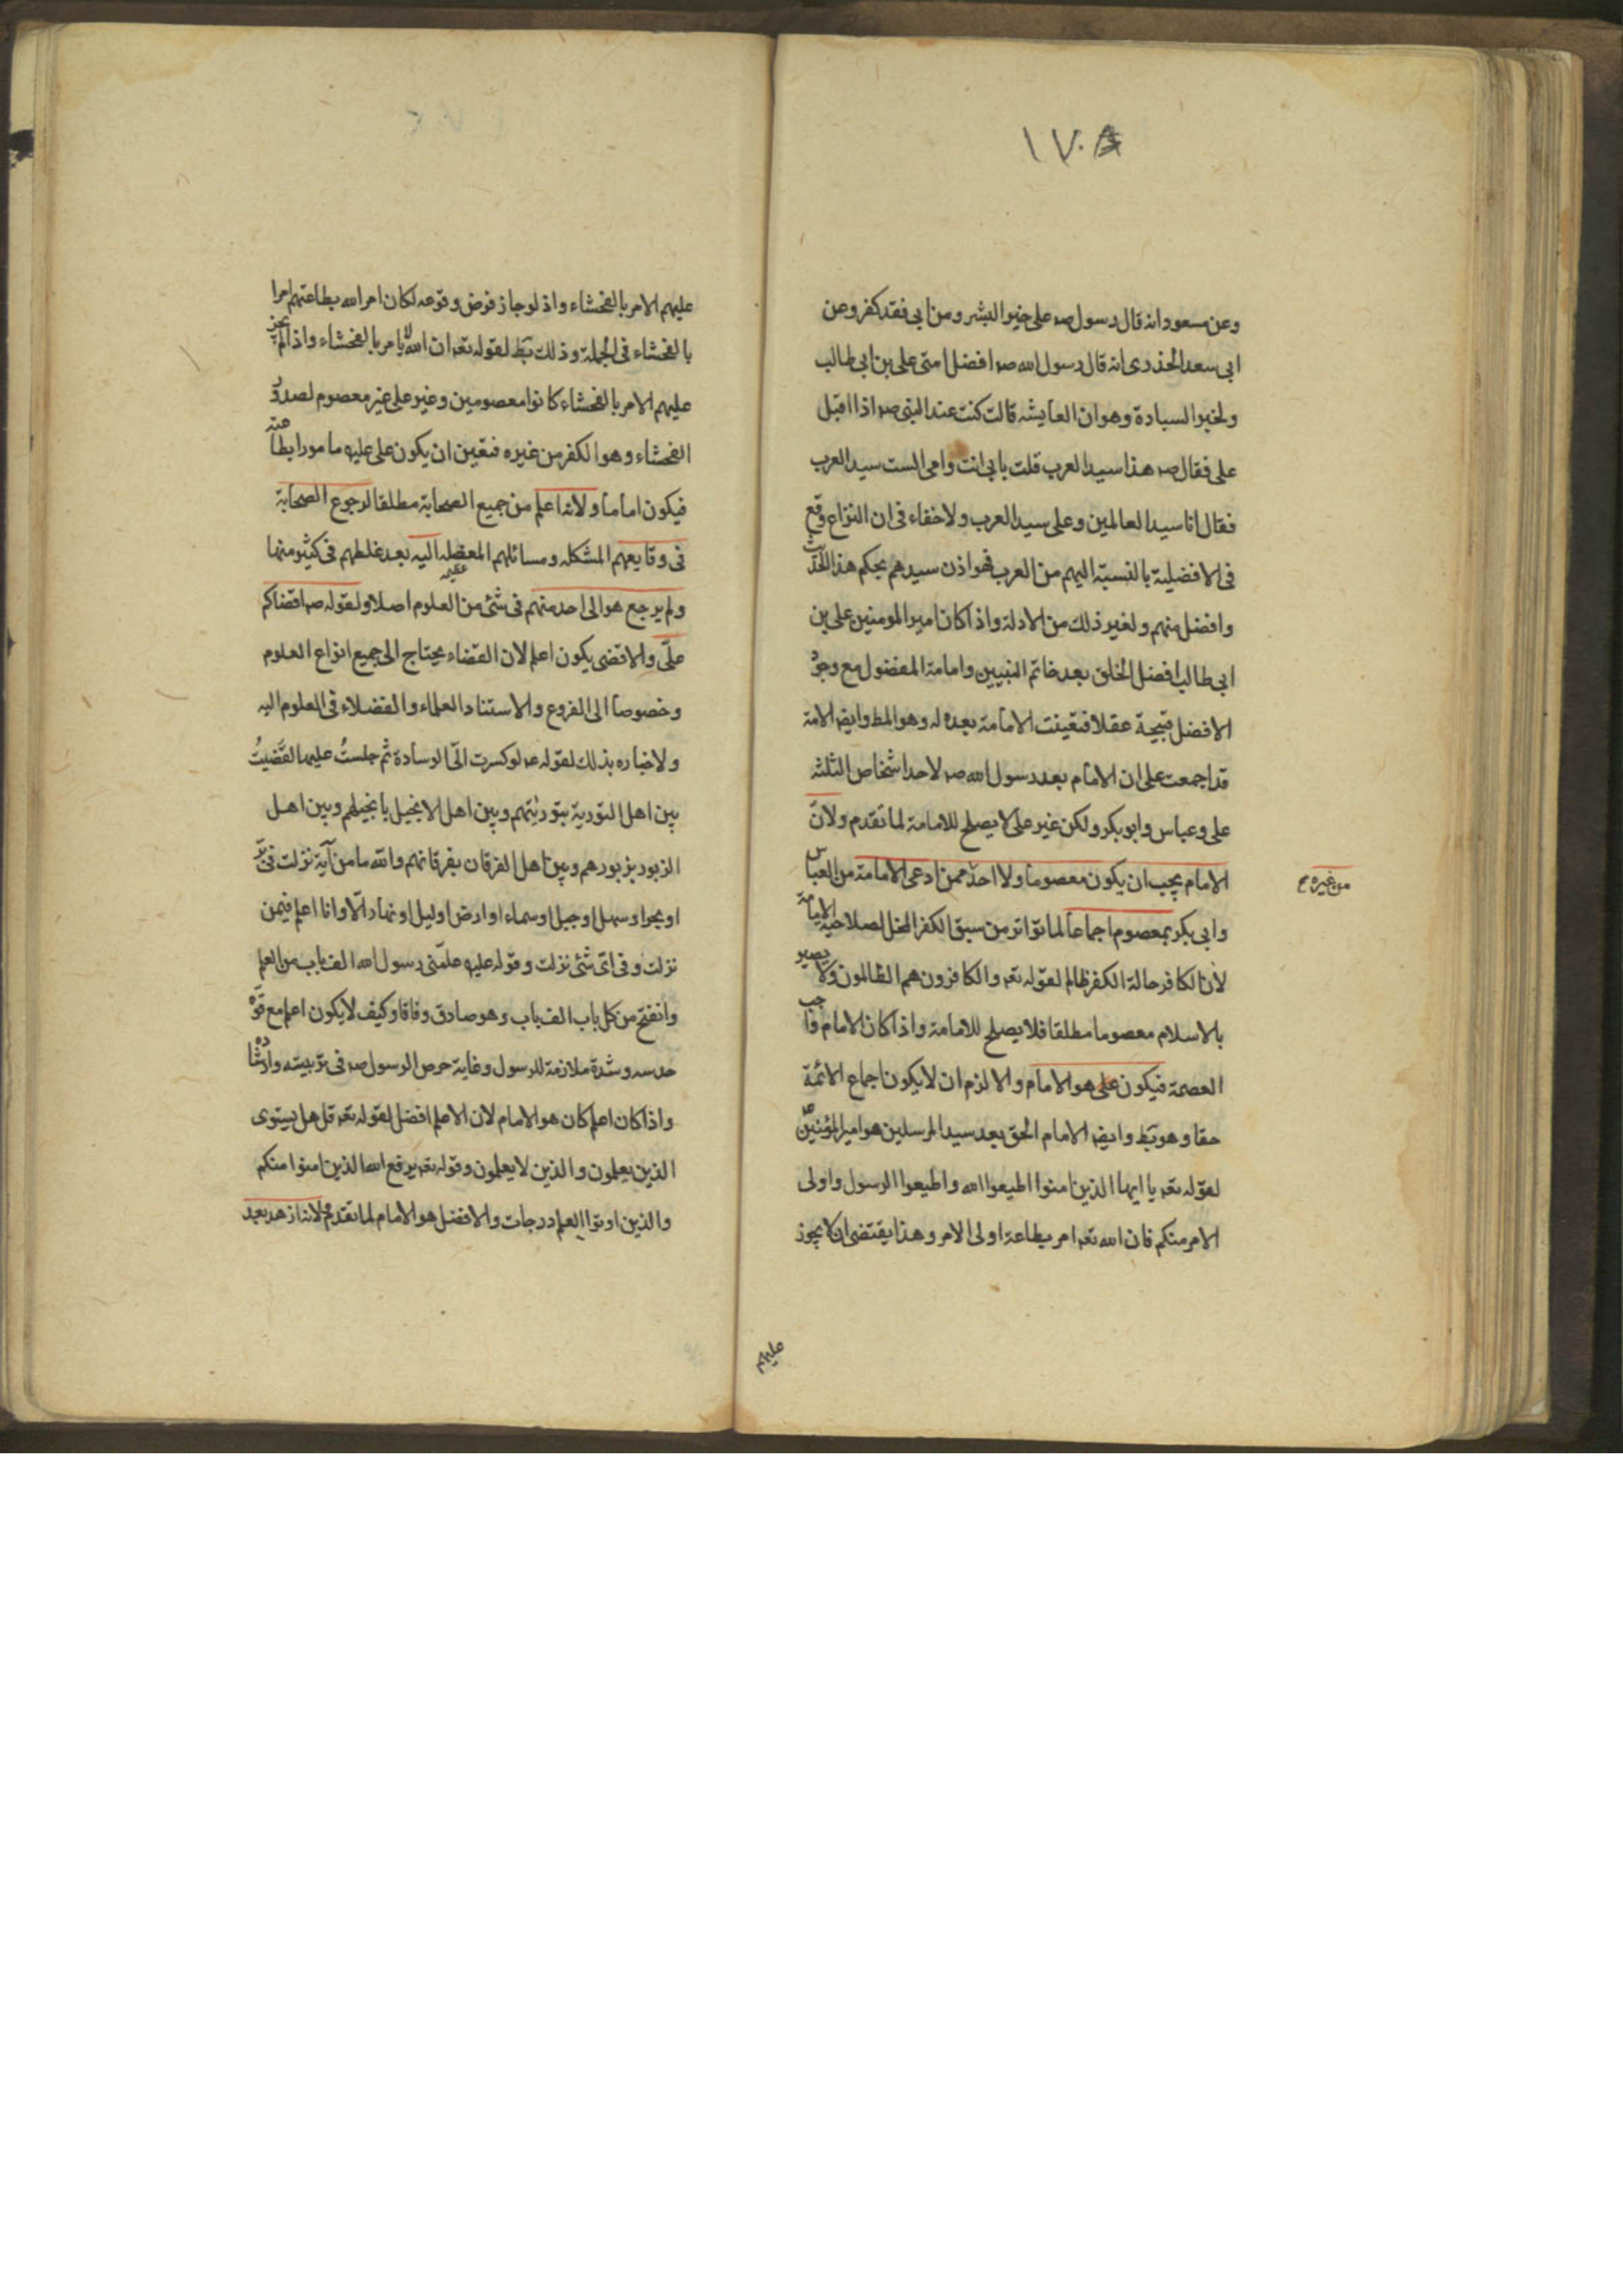 ١٧٠٨
وعن مسعود انه قال رسول صه على خير البشر ومن ابى فقد كفر وعن
ابى سعد الخدرى انه قال رسول الله صه افضل امتى على بن ابى طالب
ولخبر السيادة وهو ان العايشه قالت كنت عند النبى صه اذا اقبل
على فقال صه هذا سيد العرب قلت بابى انت وامى الست سيد العرب
فقال انا سيد العالمين وعلى سيد العرب ولا خفاء فى ان النزاع وقع
فى الافضلية بالنسبة اليهم من العرب فهو اذن سيدهم بحكم هذا الحديث
وافضل منهم ولغير ذلك من الادلة واذا كان امير المومنين على بن
ابى طالب افضل الخلق بعد خاتم النبيين وامامة المفضول مع وجود
الافضل قبيحة عقلا فتعينت الامامة بعده له وهو المط وايضا الامة
قد اجمعت على ان الامام بعد رسول الله صه لاحد اشخاص الثلثه
على وعباس وابو بكر ولكن غير على لا يصلح للامامة لما تقدم ولان
الامام يجب ان يكون معصوما ولا احد ممن ادعى الامامة من العباس
من غيره
وابى بكر بمعصوم اجماعا لما تواتر من سبق الكفر المخل لصلاحية الامامة
لان الكافر حالة الكفر ظالم لقوله تعه والكافرون هم الظالمون ولا يصير
بالاسلام معصوما مطلقا فلا يصلح للامامة واذا كان الامام واجب
العصمة فيكون على هو الامام والا لزم ان لا يكون اجماع الائمة
حقا وهو بَط وايضا الامام الحق بعد سيد المرسلين هو امير المؤمنين
لقوله تعه يا ايها الذين امنوا اطيعوا الله واطيعوا الرسول واولى
الامر منكم فان الله تعه امر بطاعة اولى الامر وهذا يقتضى ان لا يجوز
عليهم
عليهم الامر بالفحشاء واذ لو جاز فرض وقوعه لكان امر الله بطاعتهم امرا
بالفحشاء فى الجملة وذلك بَط لقوله تعه ان الله لا يامر بالفحشاء واذا لم يجز
عليهم الامر بالفحشاء كانوا معصومين وغير على غير معصوم لصدور
الفحشاء وهو الكفر من غيره فتعين ان يكون على عليه مامورا بطاعته
فيكون اماما ولانه اعلم من جميع الصحابة مطلقا لرجوع الصحابة
فى وقايعهم المشكله ومسائلهم المعضله اليه بعد غلطهم فى كثير منها
ولم يرجع هو الى احد منهم فى شئ من العلوم اصلا ولقوله صه اقضاكم
علىّ والاقضى يكون اعلم لان القضاء يحتاج الى جميع انواع العلوم
وخصوصا الى الفروع والاستناد العلماء والفضلاء فى العلوم اليه
ولاخباره بذلك لقوله عه لو كسرت الىّ الوسادة ثم جلستُ عليها لقضيتُ
بين اهل التورية بتوريتهم وبين اهل الانجيل بانجيلهم وبين اهل
الزبور بزبورهم وبين اهل الفرقان بفرقانهم والله ما من آية نزلت فى برّ
او بحر او سهل او جبل او سماء او ارض او ليل او نهار الّا وانا اعلم فيمن
نزلت وفى اى شئ نزلت وقوله عليه علّمنى رسول الله الف باب من العلم
وانفتح من كل باب الف باب وهو صادق وفاقا وكيف لا يكون اعلم مع قوّة
حدسه وشدة ملازمة للرسول وغاية حرص الرسول صه فى تربيته وارشاده
واذا كان اعلم كان هو الامام لان الاعلم افضل لقوله تعه قل هل يستوى
الذين يعلمون والذين لا يعلمون وقوله تعه يرفع الله الذين امنوا منكم
والذين اوتوا العلم درجات والافضل هو الامام لما تقدم ولانه ازهد بعد